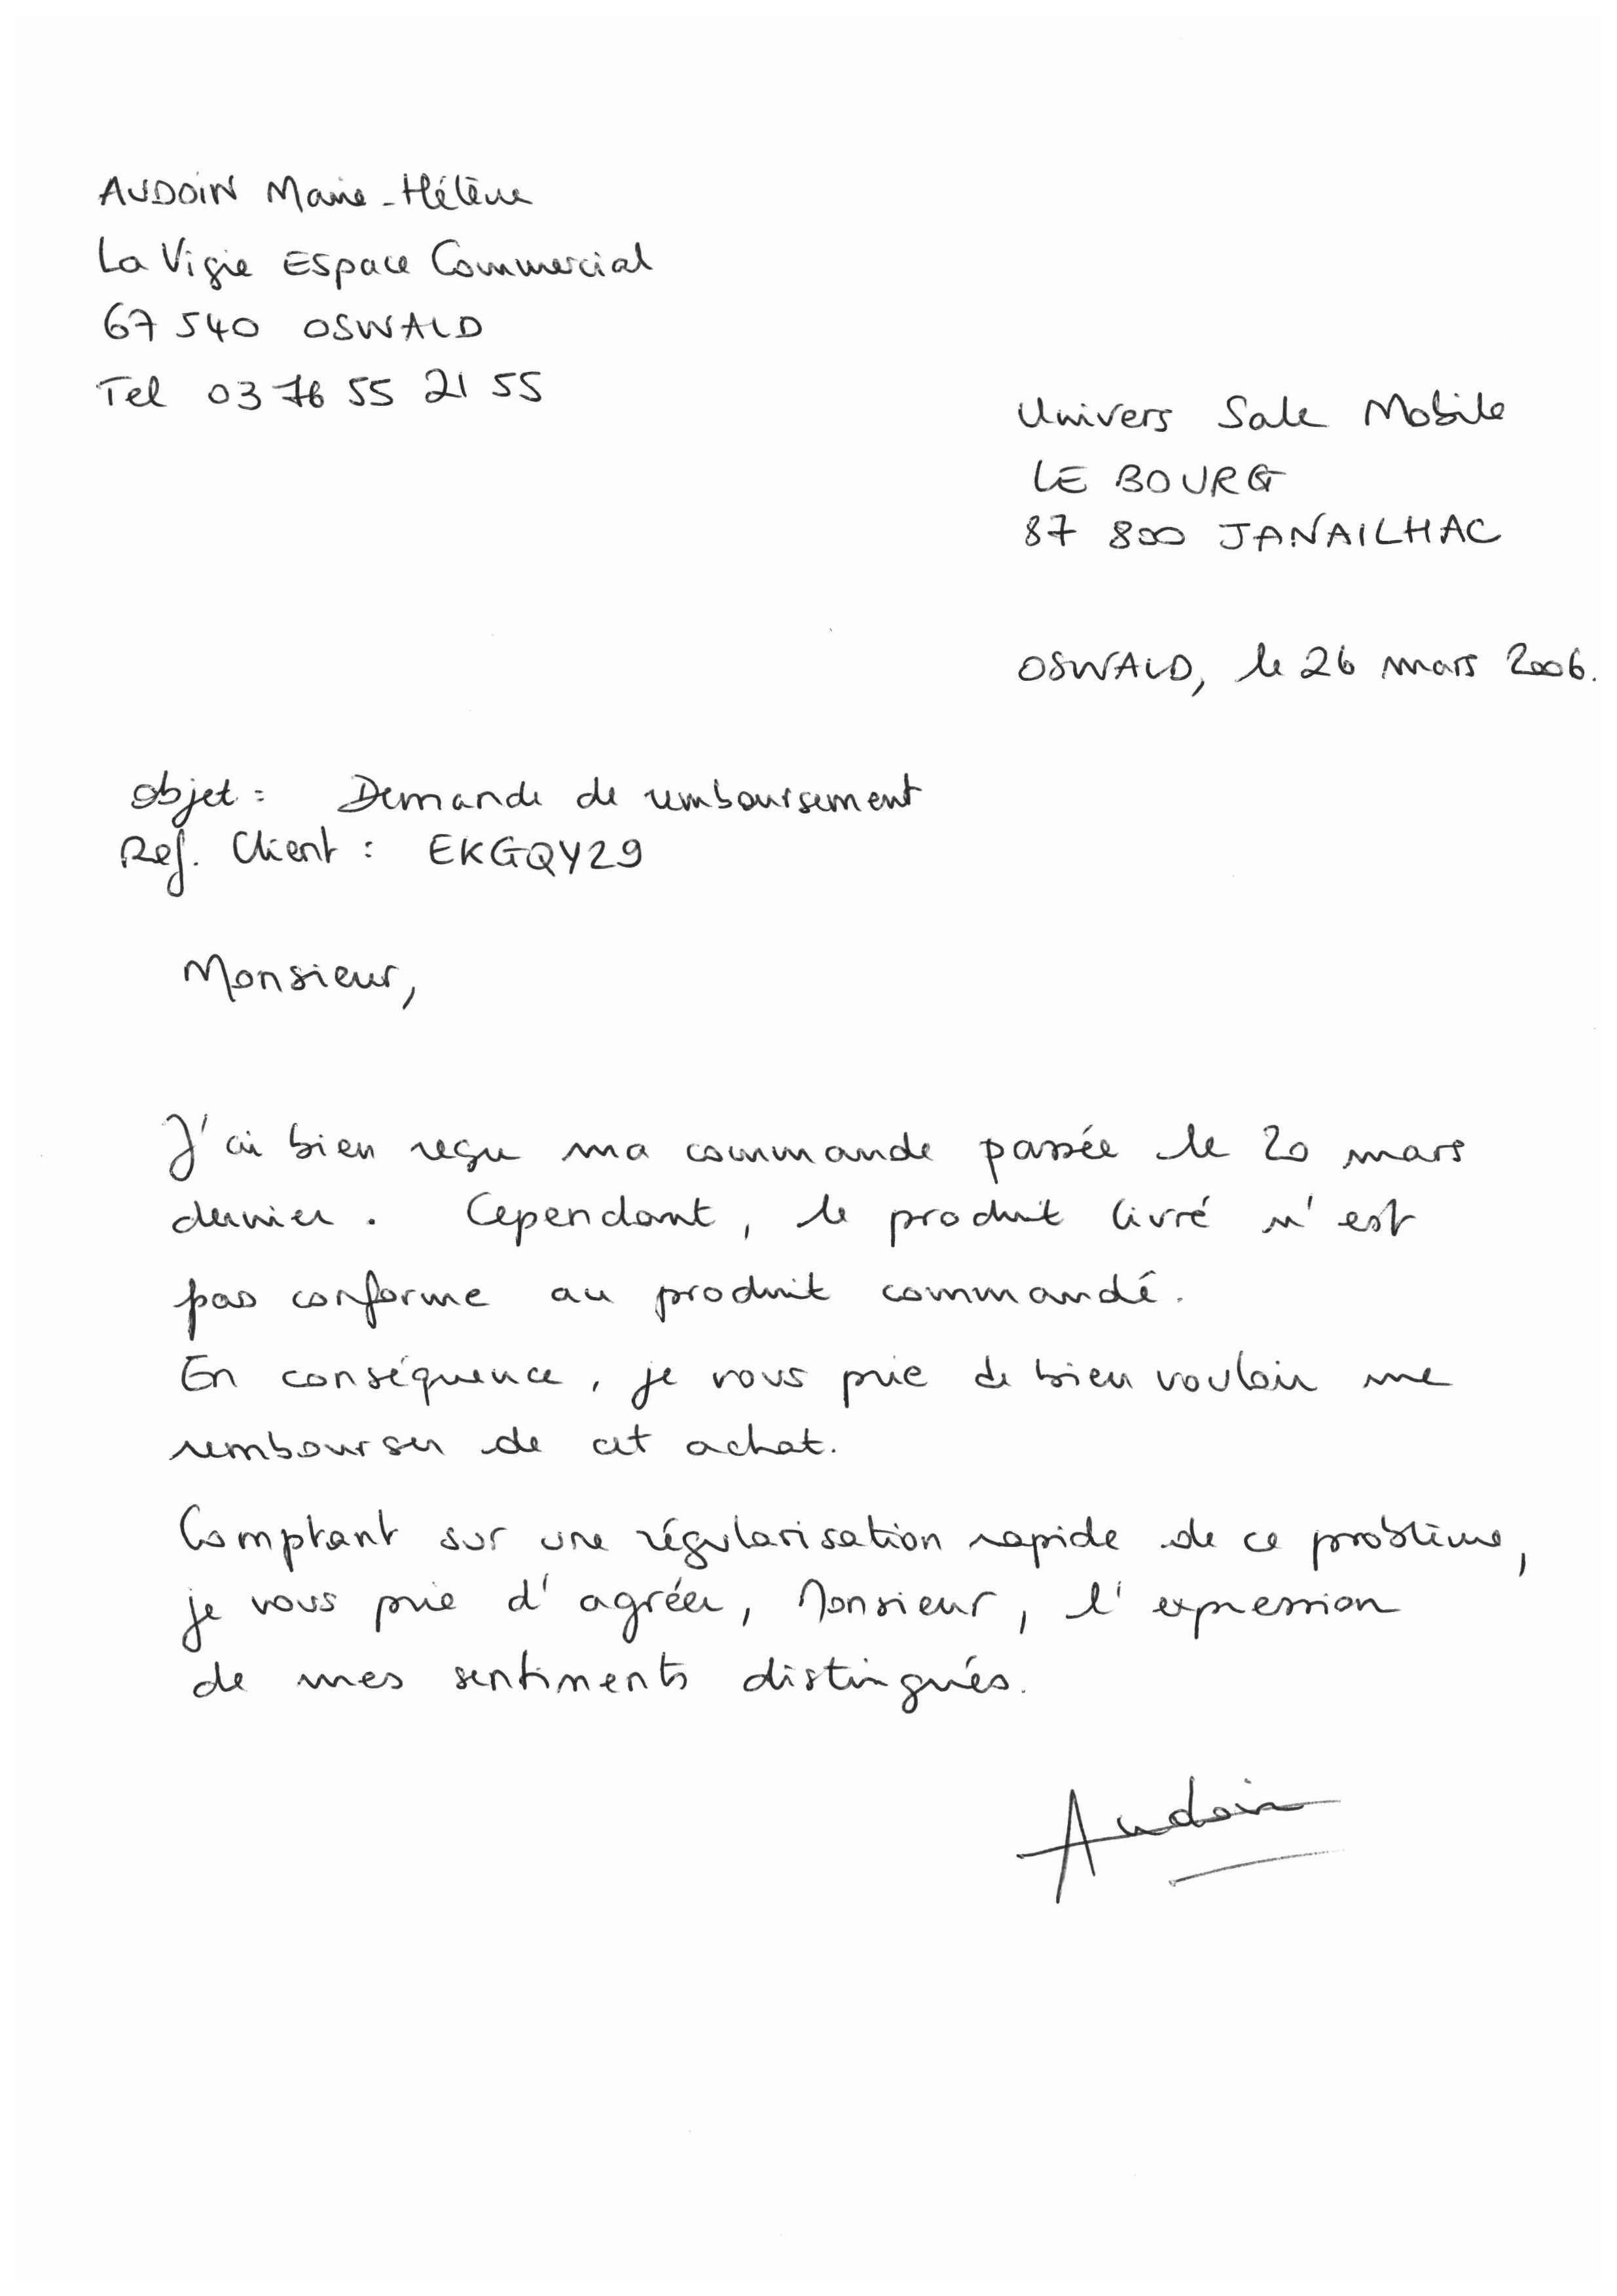 AUDOIN Marie-Hélène
La Vigie Espace Commercial
67 540 OSWALD
Tel 03 76 55 21 55
Univers Sale Mobile
LE BOURG
87 800 JANAILHAC
OSWALD, le 26 mars 2006.
Objet : Demande de remboursement
Ref. Client : EKGQY29
Monsieur,
J'ai bien reçu ma commande passée le 20 mars
dernier. Cependant, le produit livré n'est
pas conforme au produit commandé.
En conséquence, je vous prie de bien vouloir me
rembourser de cet achat.
Comptant sur une régularisation rapide de ce problème,
je vous prie d'agréer, Monsieur, l'expression
de mes sentiments distingués.
Audoin